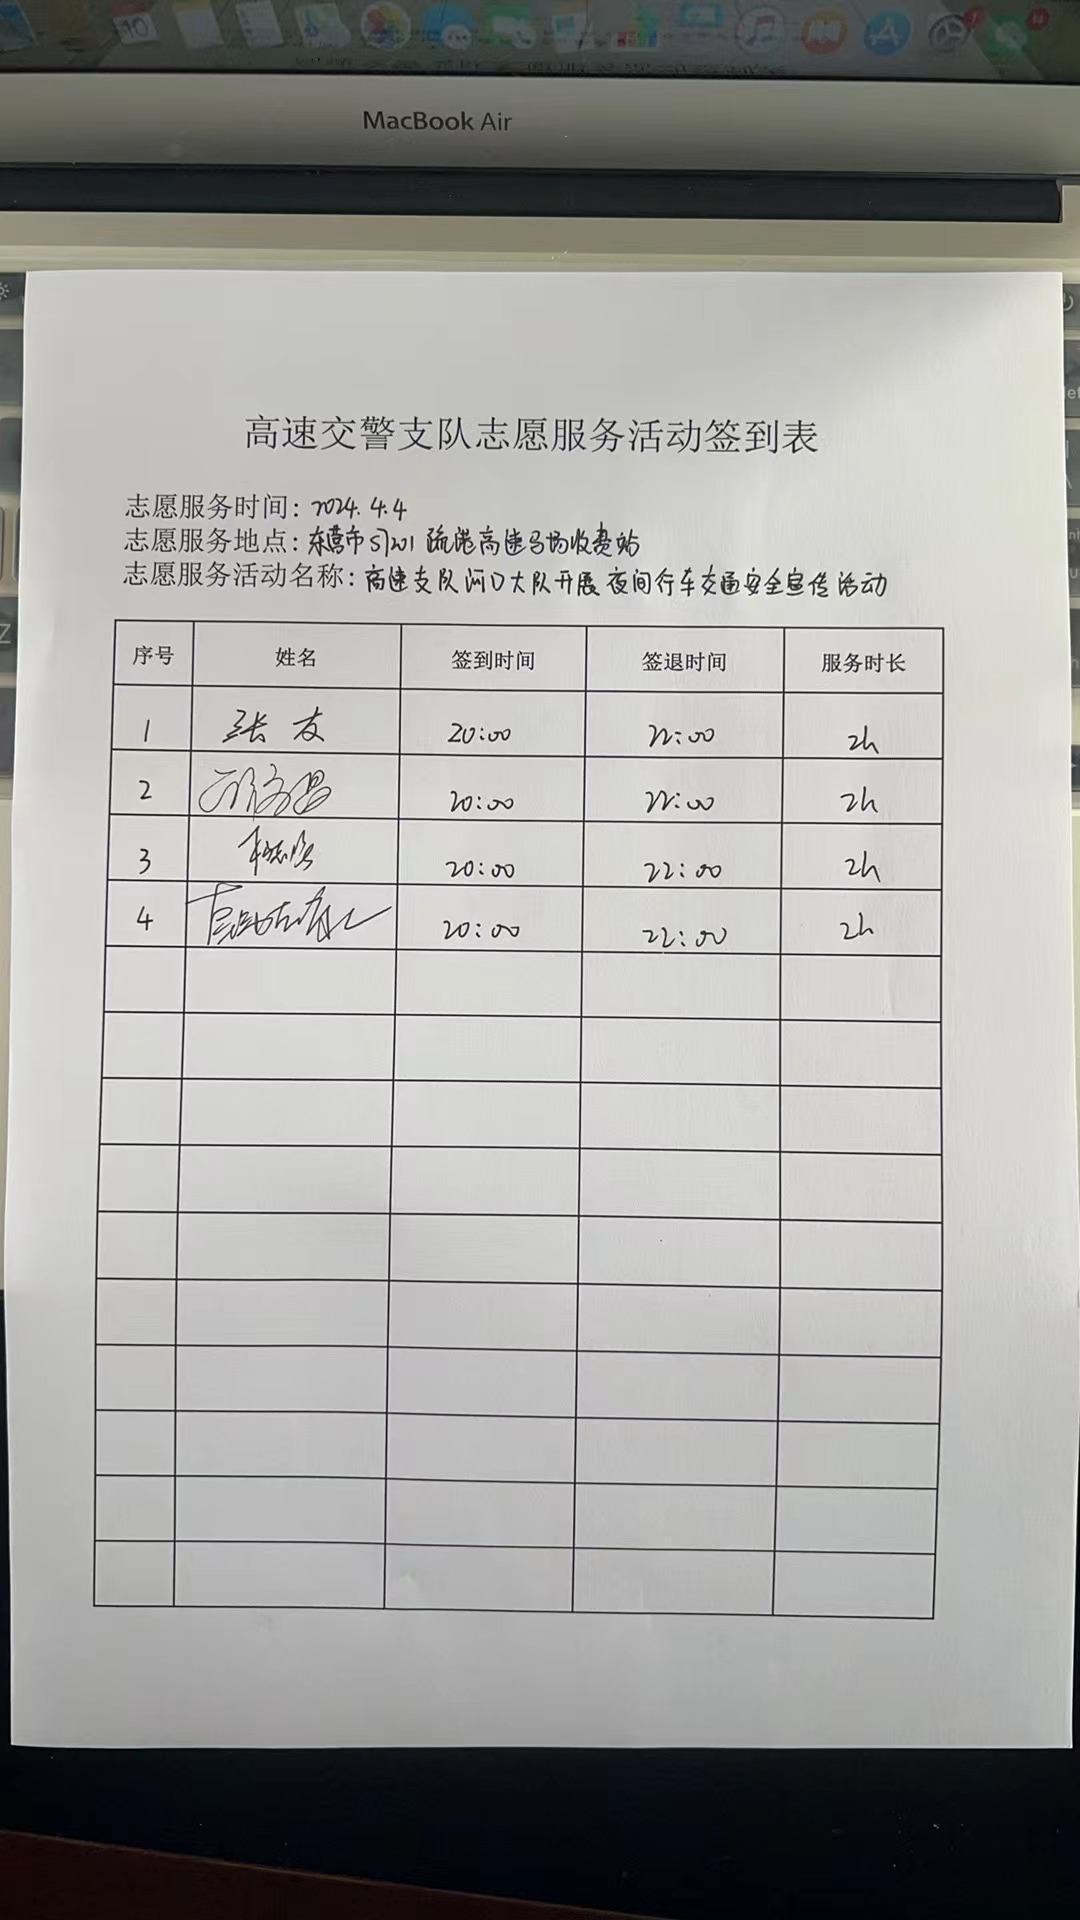 MacBook Air
高速交警支队志愿服务活动签到表
志愿服务时间：2024.4.4
志愿服务地点：东营市S7201疏港高速马场收费站
志愿服务活动名称：高速支队河口大队开展夜间行车交通安全宣传活动
序号 姓名 签到时间 签退时间 服务时长
1 张友 20:00 22:00 2h
2 20:00 22:00 2h
3 20:00 22:00 2h
4 20:00 22:00 2h